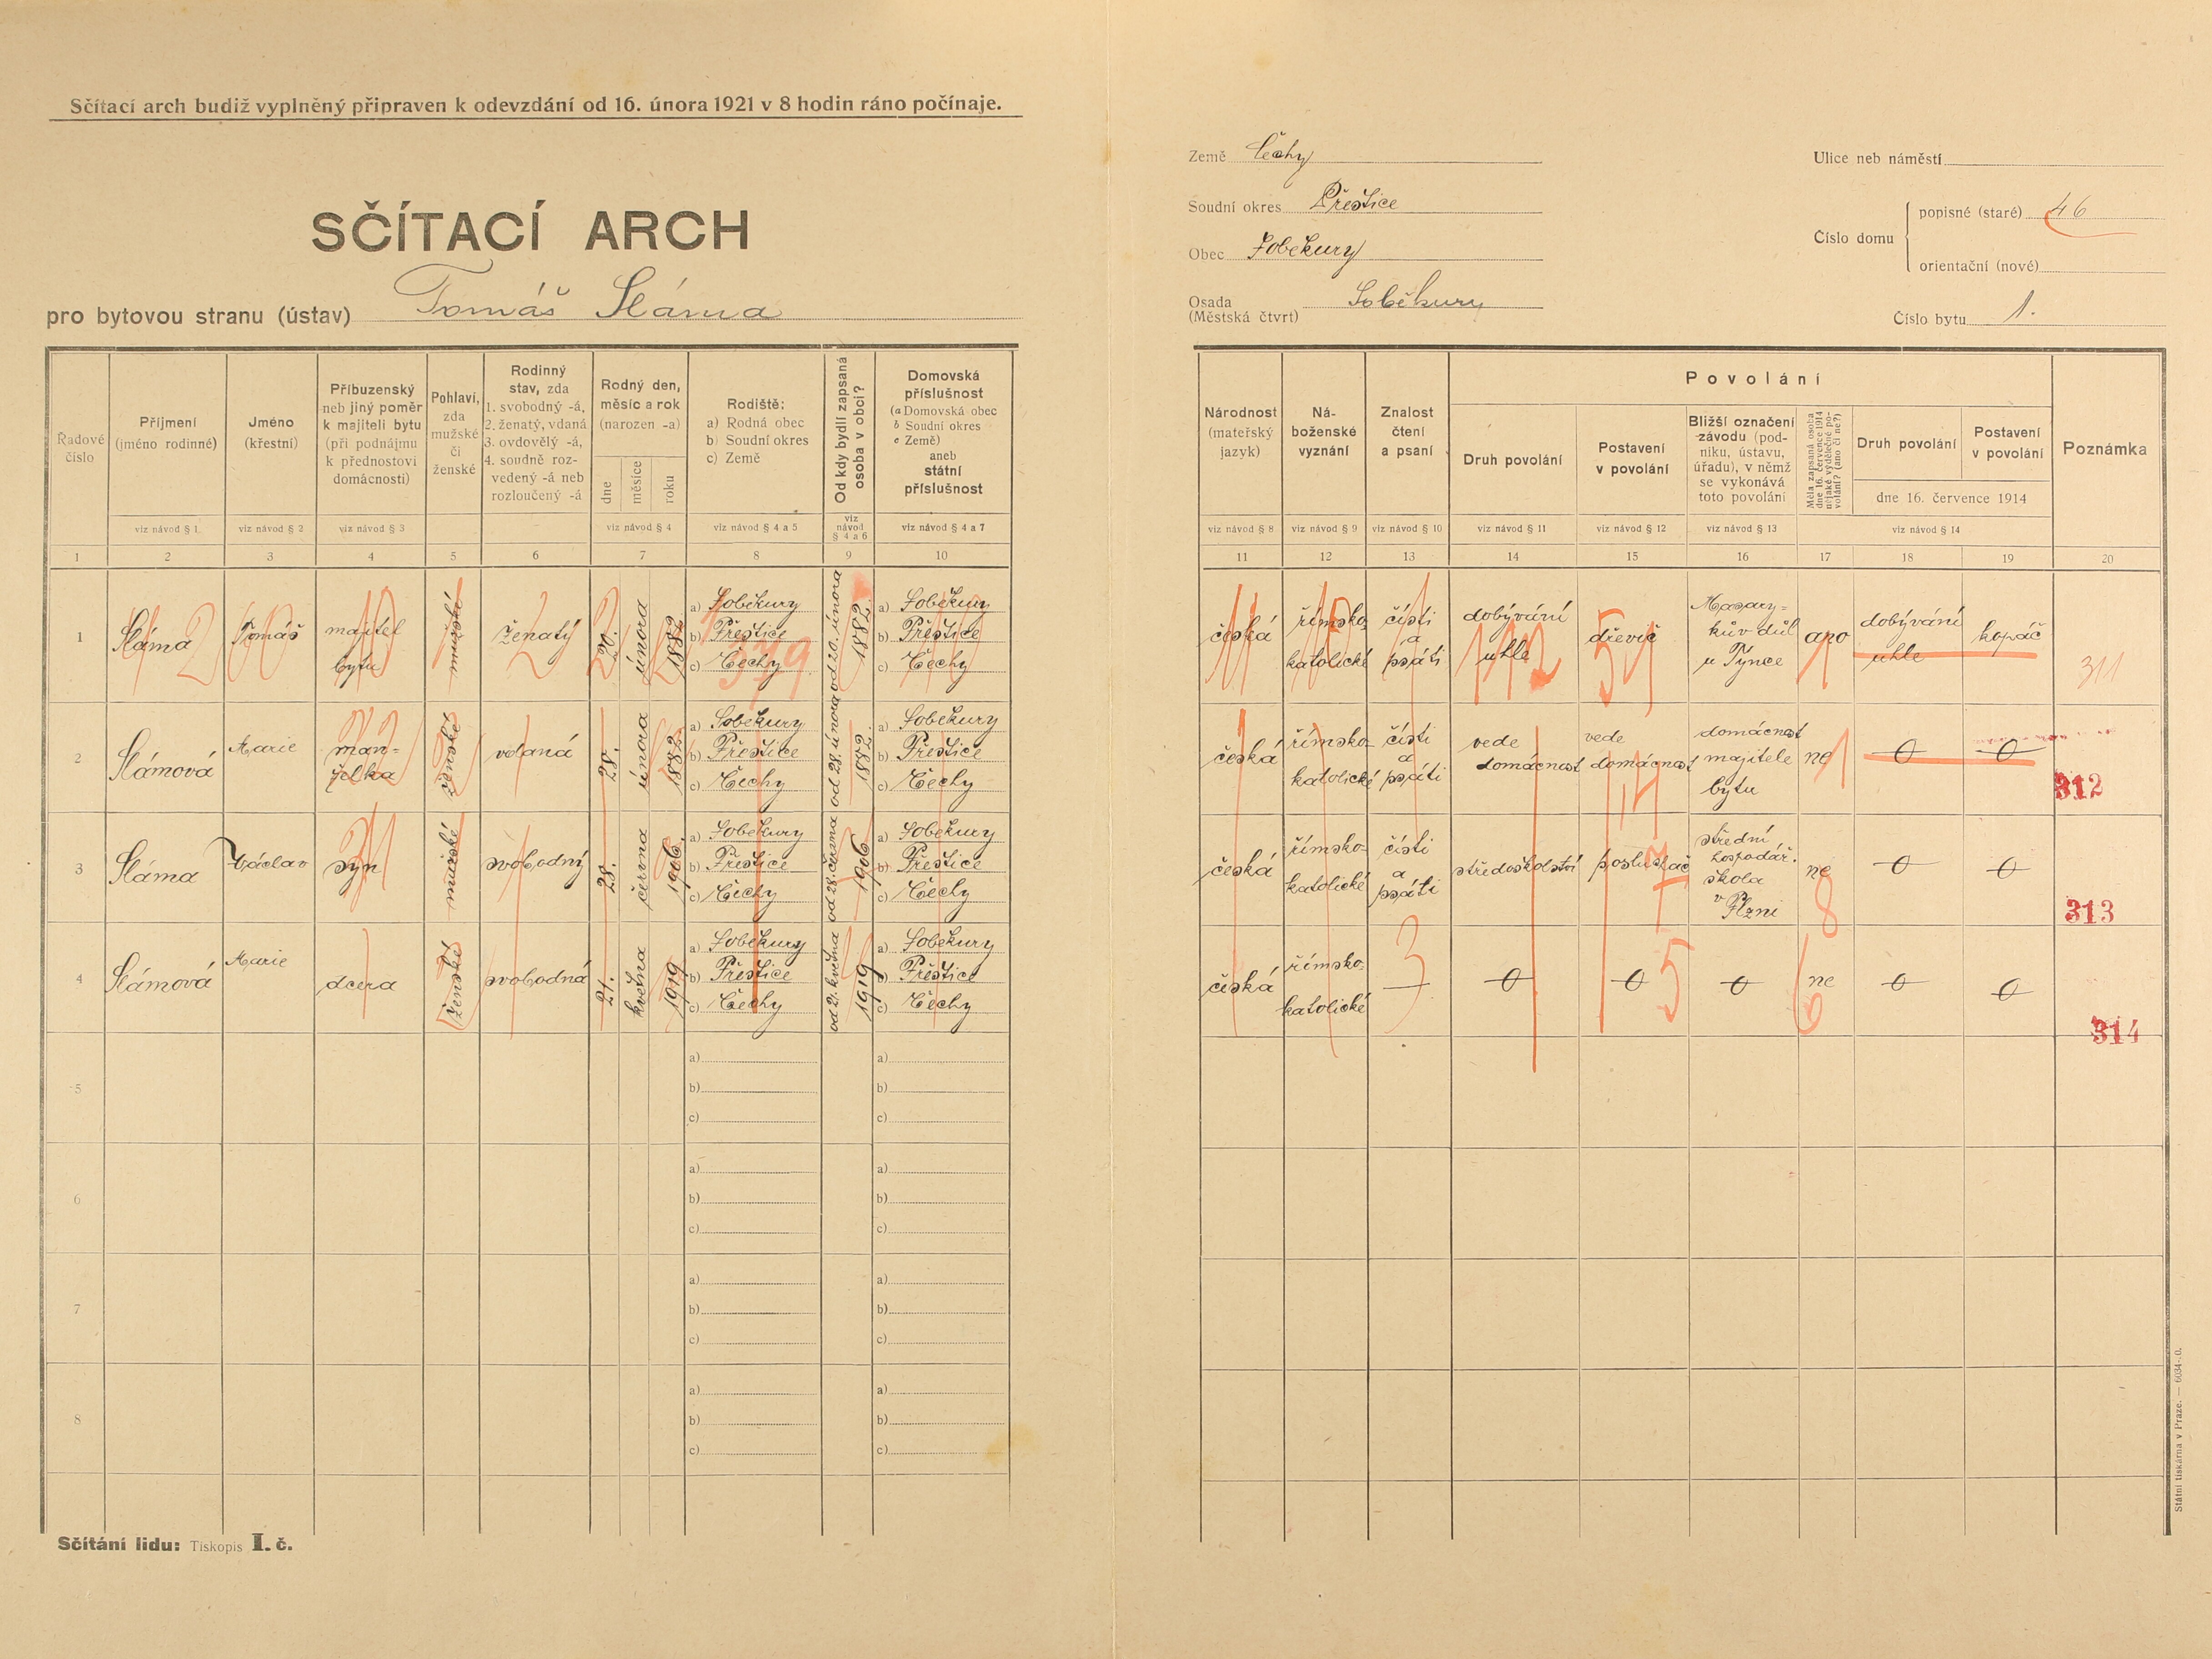 Sčítací arch budiž vyplněný připraven k odevzdání od 16. února 1921 v 8 hodin ráno počínaje.
SČÍTACÍ ARCH
pro bytovou stranu (ústav) Tomáš Sláma
Země Čechy
Soudní okres Přeštice
Obec Soběkury
Osada Soběkury
(Městská čtvrt)
Ulice neb náměstí
Číslo domu
popisné (staré) 46
orientační (nové)
Číslo bytu 1.
Řadové číslo
Příjmení (jméno rodinné)
viz návod § 1
Jméno (křestní)
viz návod § 2
Příbuzenský neb jiný poměr k majiteli bytu (při podnájmu k přednostovi domácnosti)
viz návod § 3
Pohlaví, zda mužské či ženské
Rodinný stav, zda 1. svobodný -á, 2. ženatý, vdaná 3. ovdovělý -á, 4. soudně rozvedený -á neb rozloučený -á
Rodný den, měsíc a rok (narozen -a)
dne měsíce roku
viz návod § 4
Rodiště: a) Rodná obec b) Soudní okres c) Země
viz návod § 4 a 5
Od kdy bydlí zapsaná osoba v obci?
viz návod § 4 a 6
Domovská příslušnost (a Domovská obec b Soudní okres c Země) aneb státní příslušnost
viz návod § 4 a 7
Národnost (mateřský jazyk)
viz návod § 8
Náboženské vyznání
viz návod § 9
Znalost čtení a psaní
viz návod § 10
Povolání
Druh povolání
viz návod § 11
Postavení v povolání
viz návod § 12
Bližší označení závodu (podniku, ústavu, úřadu), v němž se vykonává toto povolání
viz návod § 13
Měla zapsaná osoba dne 16. července 1914 nějaké výdělečné povolání? (ano či ne?)
Druh povolání
Postavení v povolání
dne 16. července 1914
viz návod § 14
Poznámka
1 2 3 4 5 6 7 8 9 10 11 12 13 14 15 16 17 18 19 20
1 Sláma Tomáš majitel bytu mužské ženatý 20. února 1882 a) Soběkury b) Přeštice c) Čechy od 20. února 1882. a) Soběkury b) Přeštice c) Čechy česká římsko-katolické čísti a psáti dobývání uhle dřevič Masarykův důl u Týnce ano dobývání uhle kopáč 311
2 Slámová Marie manželka ženské vdaná 28. února 1882 a) Soběkury b) Přeštice c) Čechy od 28. února 1882. a) Soběkury b) Přeštice c) Čechy česká římsko-katolické čísti a psáti vede domácnost vede domácnost domácnost majitele bytu ne 0 0 312
3 Sláma Václav syn mužské svobodný 28. června 1906. a) Soběkury b) Přeštice c) Čechy od 28. června 1906. a) Soběkury b) Přeštice c) Čechy česká římsko-katolické čísti a psáti středoškolství posluchač střední hospodář. škola v Plzni ne 0 0 313
4 Slámová Marie dcera ženské svobodná 21. května 1919 a) Soběkury b) Přeštice c) Čechy od 21. května 1919 a) Soběkury b) Přeštice c) Čechy česká římsko-katolické — 0 0 0 ne 0 0 314
5 a) b) c) a) b) c)
6 a) b) c) a) b) c)
7 a) b) c) a) b) c)
8 a) b) c) a) b) c)
Sčítání lidu: Tiskopis I. č.
Státní tiskárna v Praze. — 6034-20.